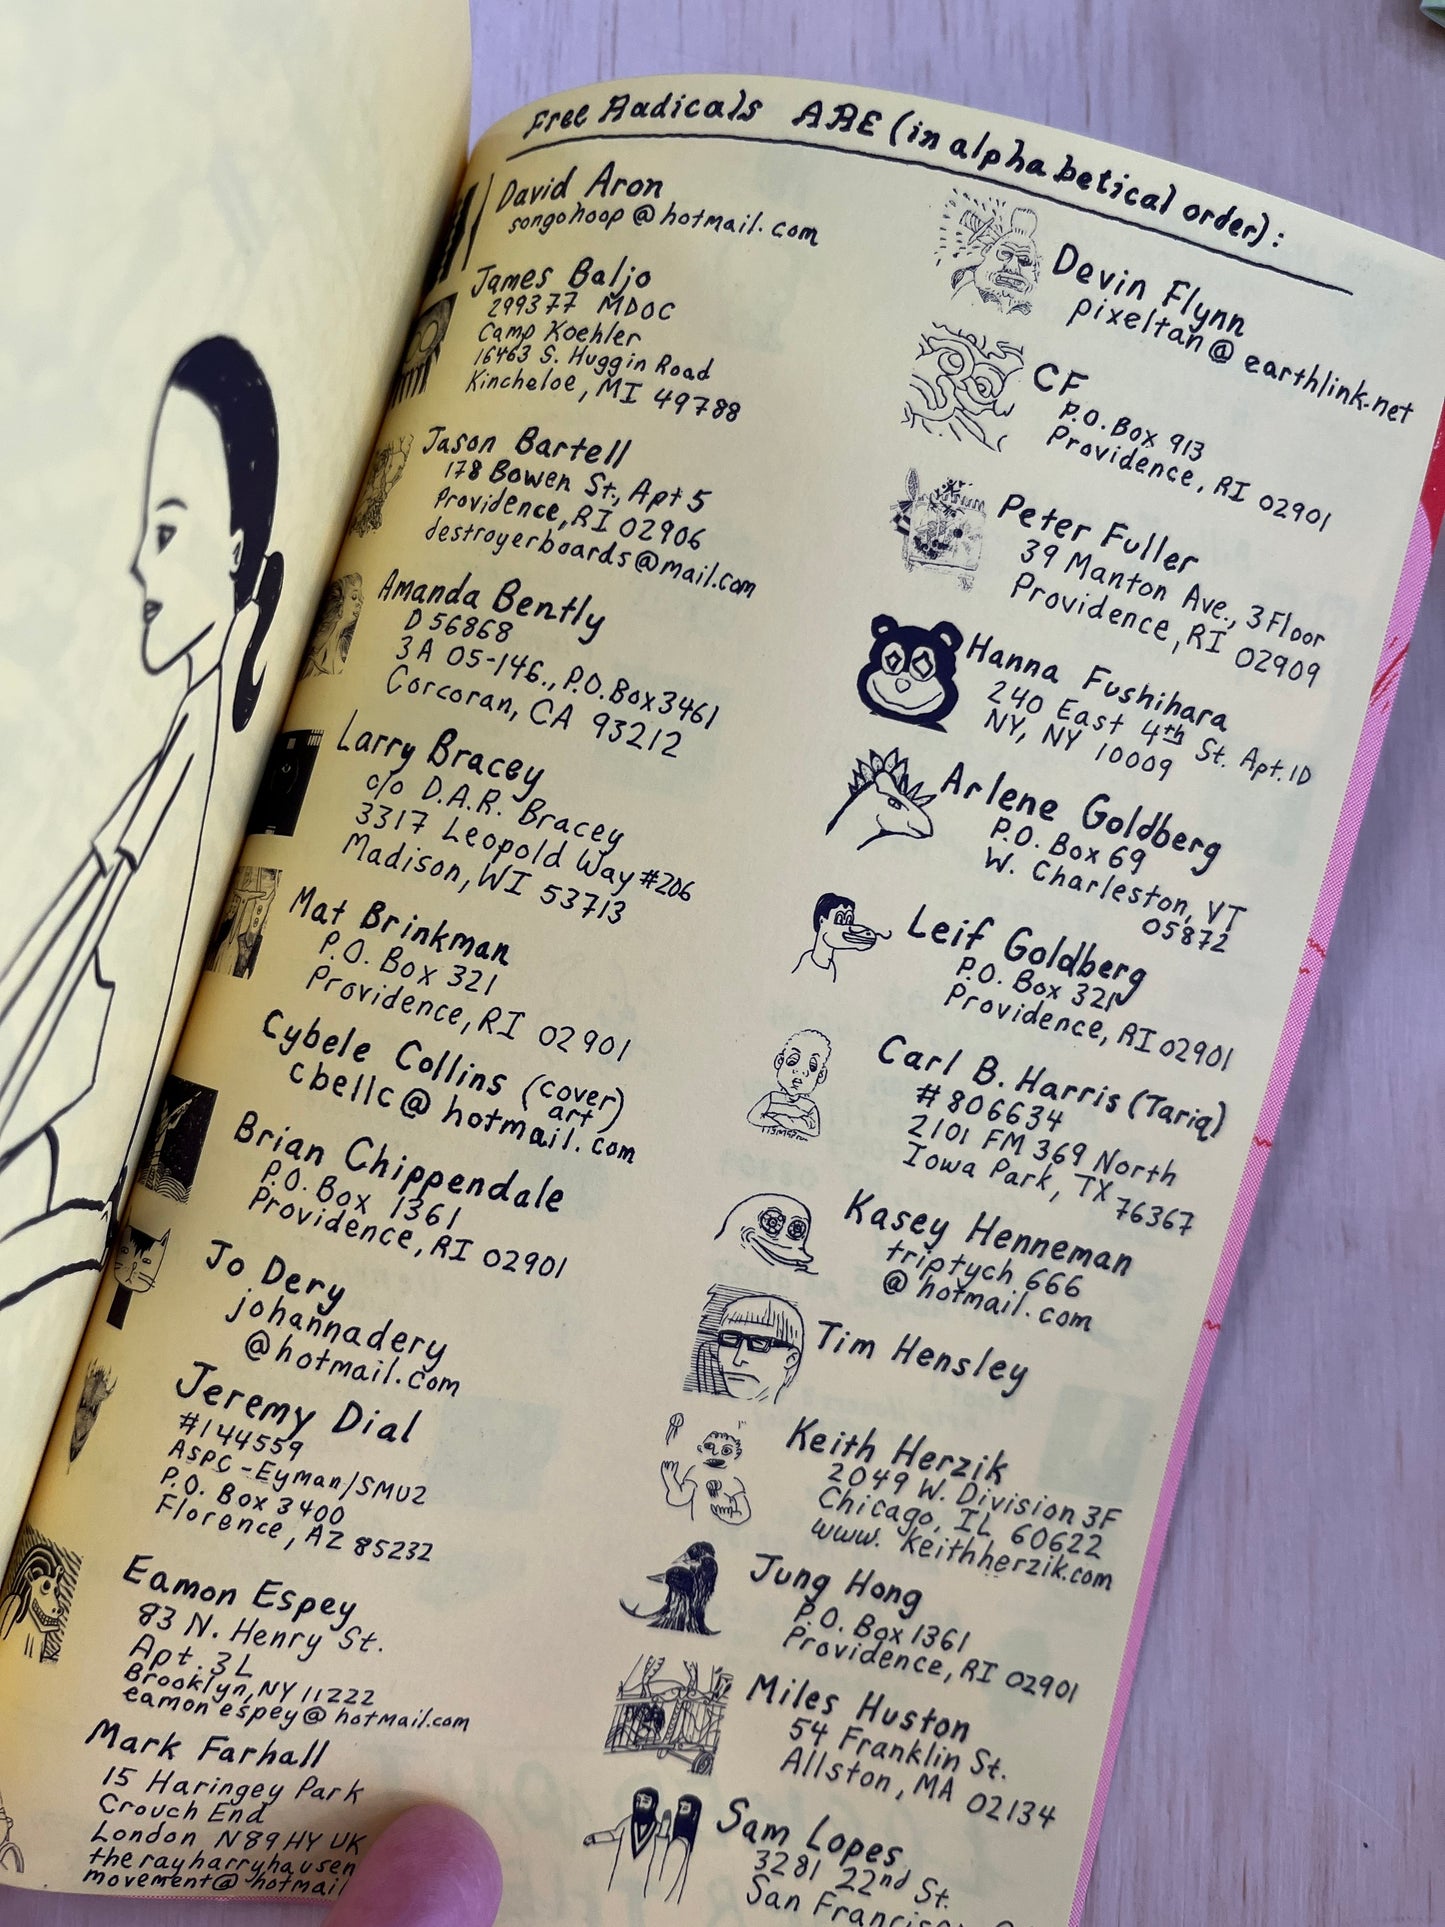 Free Radicals ARE (in alphabetical order):
David Aron
songohoop@hotmail.com
James Baljo
299377 MDOC
Camp Koehler
16463 S. Huggin Road
Kincheloe, MI 49788
Jason Bartell
178 Bowen St., Apt 5
Providence, RI 02906
destroyerboards@mail.com
Amanda Bently
D56868
3A 05-146., P.O. Box 3461
Corcoran, CA 93212
Larry Bracey
c/o D.A.R. Bracey
3317 Leopold Way #206
Madison, WI 53713
Mat Brinkman
P.O. Box 321
Providence, RI 02901
Cybele Collins (cover art)
cbellc@hotmail.com
Brian Chippendale
P.O. Box 1361
Providence, RI 02901
Jo Dery
johannadery
@hotmail.com
Jeremy Dial
#144559
ASPC-Eyman/SMU2
P.O. Box 3400
Florence, AZ 85232
Eamon Espey
83 N. Henry St.
Apt. 3L
Brooklyn, NY 11222
eamonespey@hotmail.com
Mark Farhall
15 Haringey Park
Crouch End
London N89HY UK
therayharryhausen
movement@hotmail
Devin Flynn
pixeltan@earthlink.net
CF
P.O. Box 913
Providence, RI 02901
Peter Fuller
39 Manton Ave., 3 Floor
Providence, RI 02909
Hanna Fushihara
240 East 4th St. Apt. 1D
NY, NY 10009
Arlene Goldberg
P.O. Box 69
W. Charleston, VT
05872
Leif Goldberg
P.O. Box 321
Providence, RI 02901
Carl B. Harris (Tariq)
#806634
2101 FM 369 North
Iowa Park, TX
76367
Kasey Henneman
triptych 666
@hotmail.com
Tim Hensley
Keith Herzik
2049 W. Division 3F
Chicago, IL 60622
www.keithherzik.com
Jung Hong
P.O. Box 1361
Providence, RI 02901
Miles Huston
54 Franklin St.
Allston, MA 02134
Sam Lopes
3281 22nd St.
San Francisco